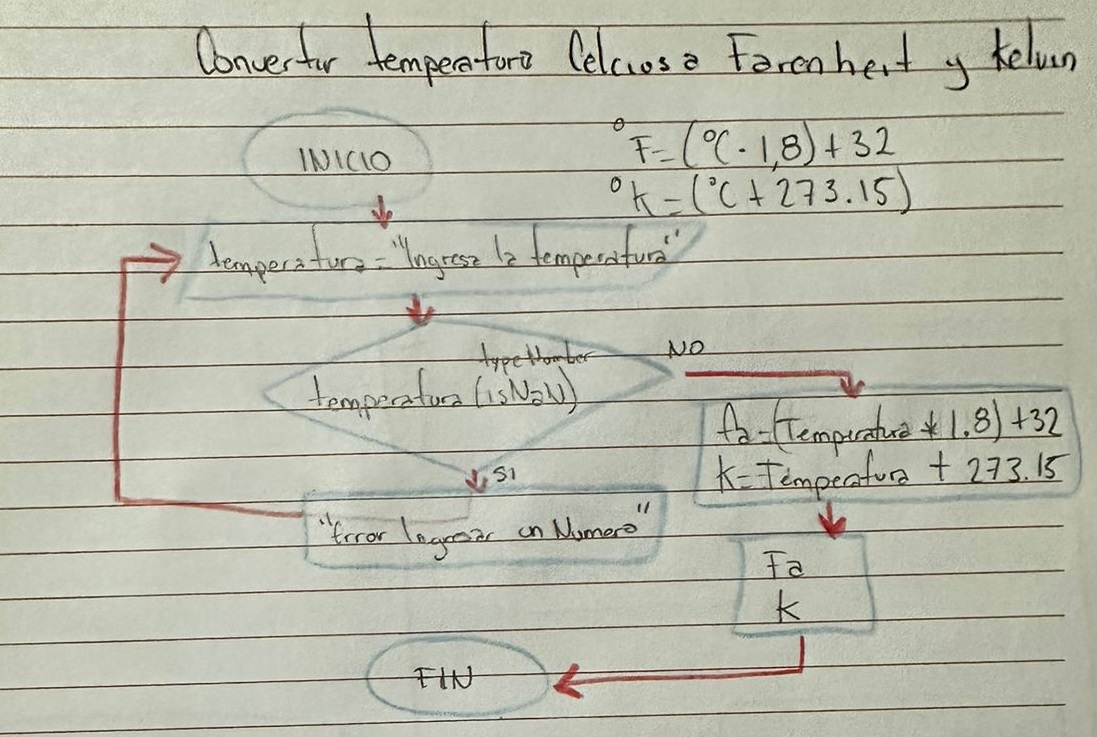 Convertir temperatura Celcios a Farenheit y kelvin
INICIO
°F=(°C·1,8)+32
°k=(°C+273.15)
temperatura="Ingresa la temperatura"
typeNomber
temperatura (isNaN)
NO
SI
fa=(Temperatura * 1.8) +32
k=Temperatura + 273.15
"Error Ingresar un Numero"
Fa
k
FIN